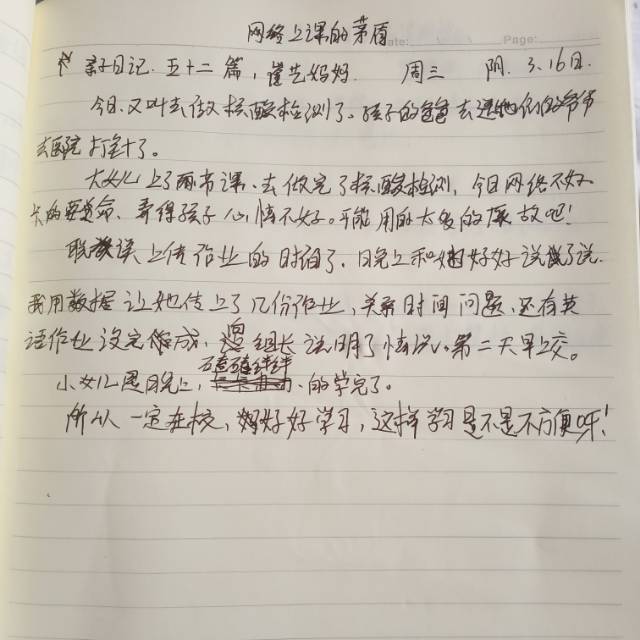 网络上课的茅盾
Date:
Page:
亲子日记.五十二篇,崔艺妈妈. 周三 阴.3.16日.
今日.又叫去做核酸检测了.孩子的爸爸去送她们的爷爷
去医院打针了。
大女儿上了两节课.去做完了核酸检测,今日网络不好
卡的要命.弄得孩子心情不好。可能用的太多的原故吧!
耽误上传作业的时间了.晚上和她好好说了说.
我用数据让她传上了几份作业,关系时间问题.还有英
语作业没完成.组长说明了情况.第二天早上交。
小女儿晚上,磕磕绊绊的学完了。
所以一定在校,好好学习,这样学习是不是不方便呀!